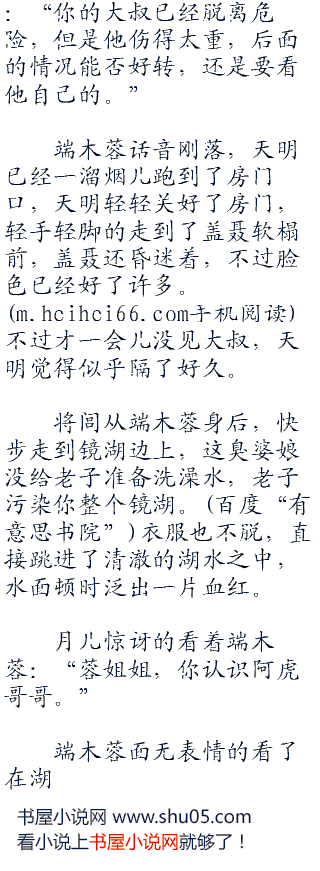 ：“你的大叔已经脱离危
险，但是他伤得太重，后面
的情况能否好转，还是要看
他自己的。”
端木蓉话音刚落，天明
已经一溜烟儿跑到了房门
口，天明轻轻关好了房门，
轻手轻脚的走到了盖聂软榻
前，盖聂还昏迷着，不过脸
色已经好了许多。
(m.hcihci66.com手机阅读)
不过才一会儿没见大叔，天
明觉得似乎隔了好久。
将闾从端木蓉身后，快
步走到镜湖边上，这臭婆娘
没给老子准备洗澡水，老子
污染你整个镜湖。(百度“有
意思书院”)衣服也不脱，直
接跳进了清澈的湖水之中，
水面顿时泛出一片血红。
月儿惊讶的看着端木
蓉：“蓉姐姐，你认识阿虎
哥哥。”
端木蓉面无表情的看了
在湖
书屋小说网 www.shu05.com
看小说上书屋小说网就够了！